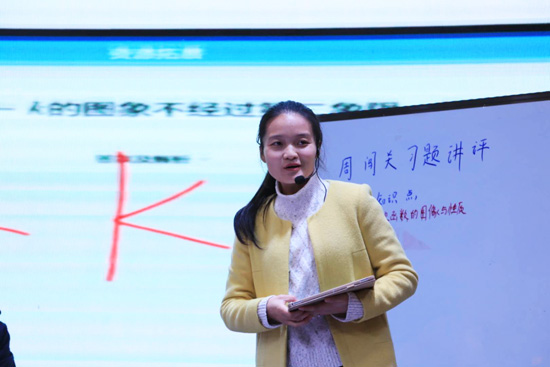 资源拓展
的图象不经过第二象限
K
周闯关习题讲评
知识点:
函数的图像与性质